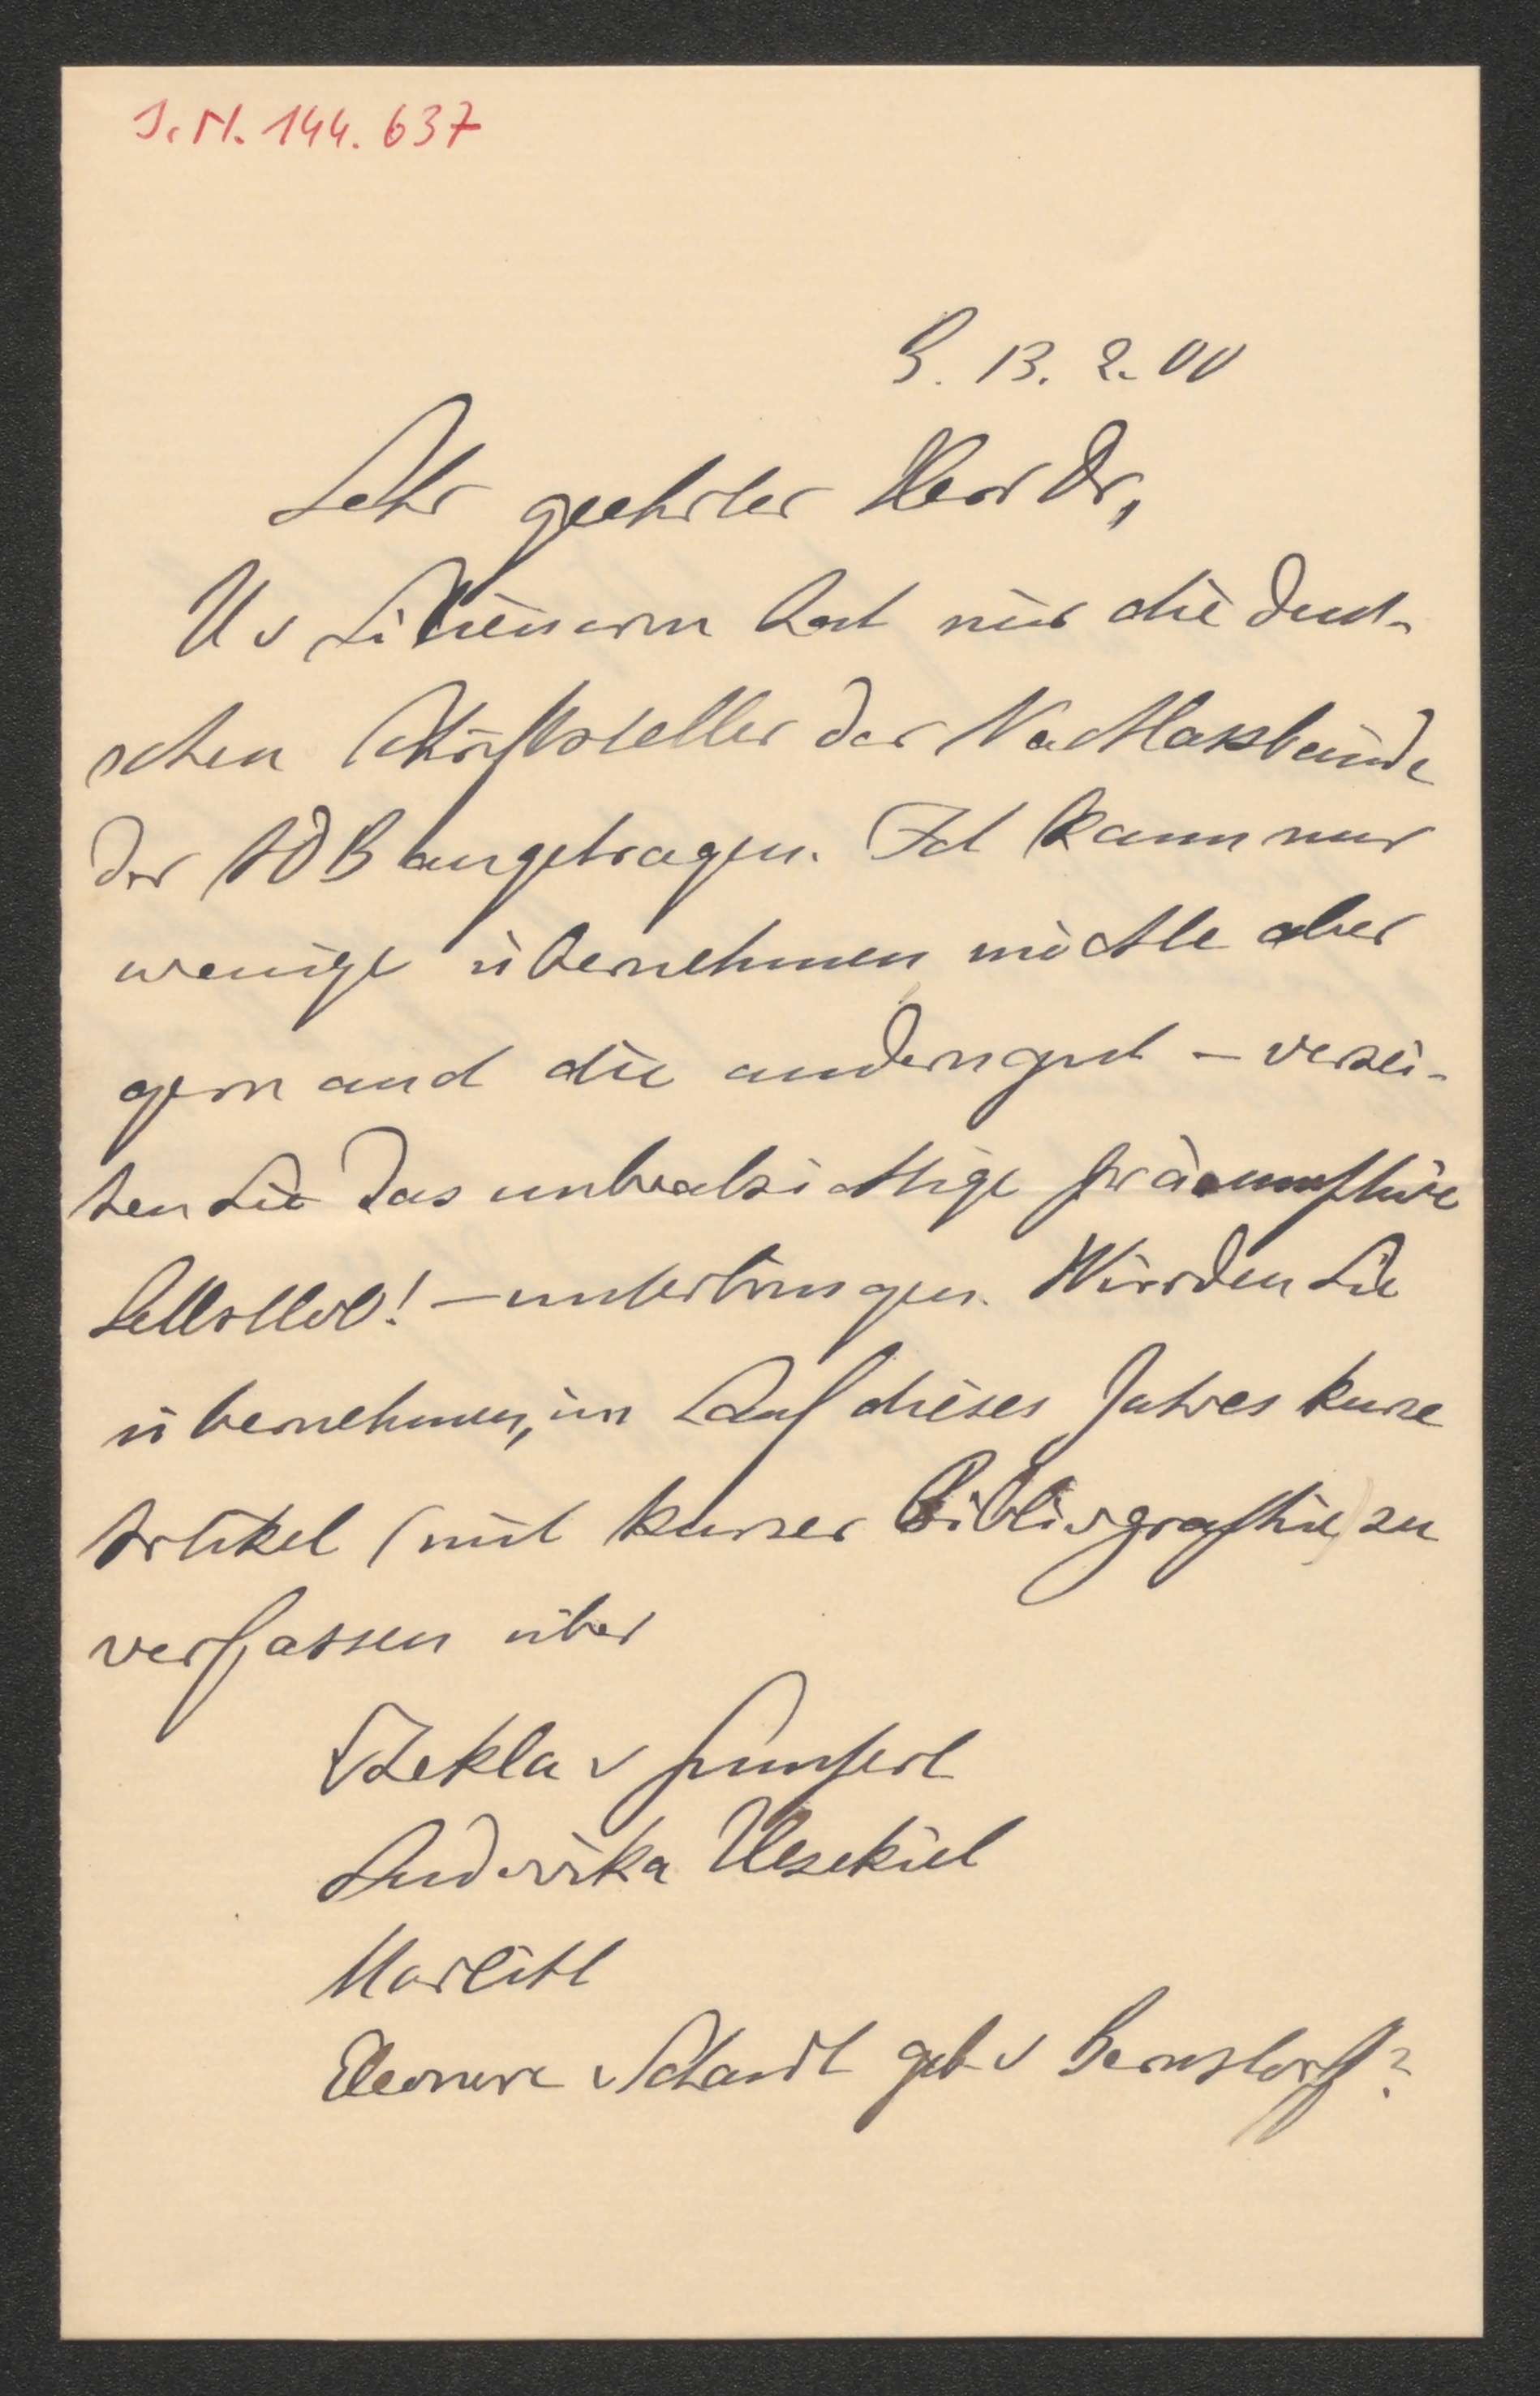 I. N. 144.637
B. 13. 2. 00
Sehr geehrter Herr Dr,
H v Liliencron hat mir die deut-
schen Schriftsteller der Nachlassbände
der ADB angetragen. Ich kann nur
wenige übernehmen möchte aber
gern auch die andern gut – verzei-
hen Sie das unbeabsichtige präsumptive
Selbstlob! – unterbringen. Würden Sie
übernehmen, im Lauf dieses Jahres kurze
Artikel (mit kurzer Bibliographie) zu
verfassen über
Thekla v Gumpert
Ludovika Hesekiel
Marlitt
Eleonore v geb v Bernstorff?